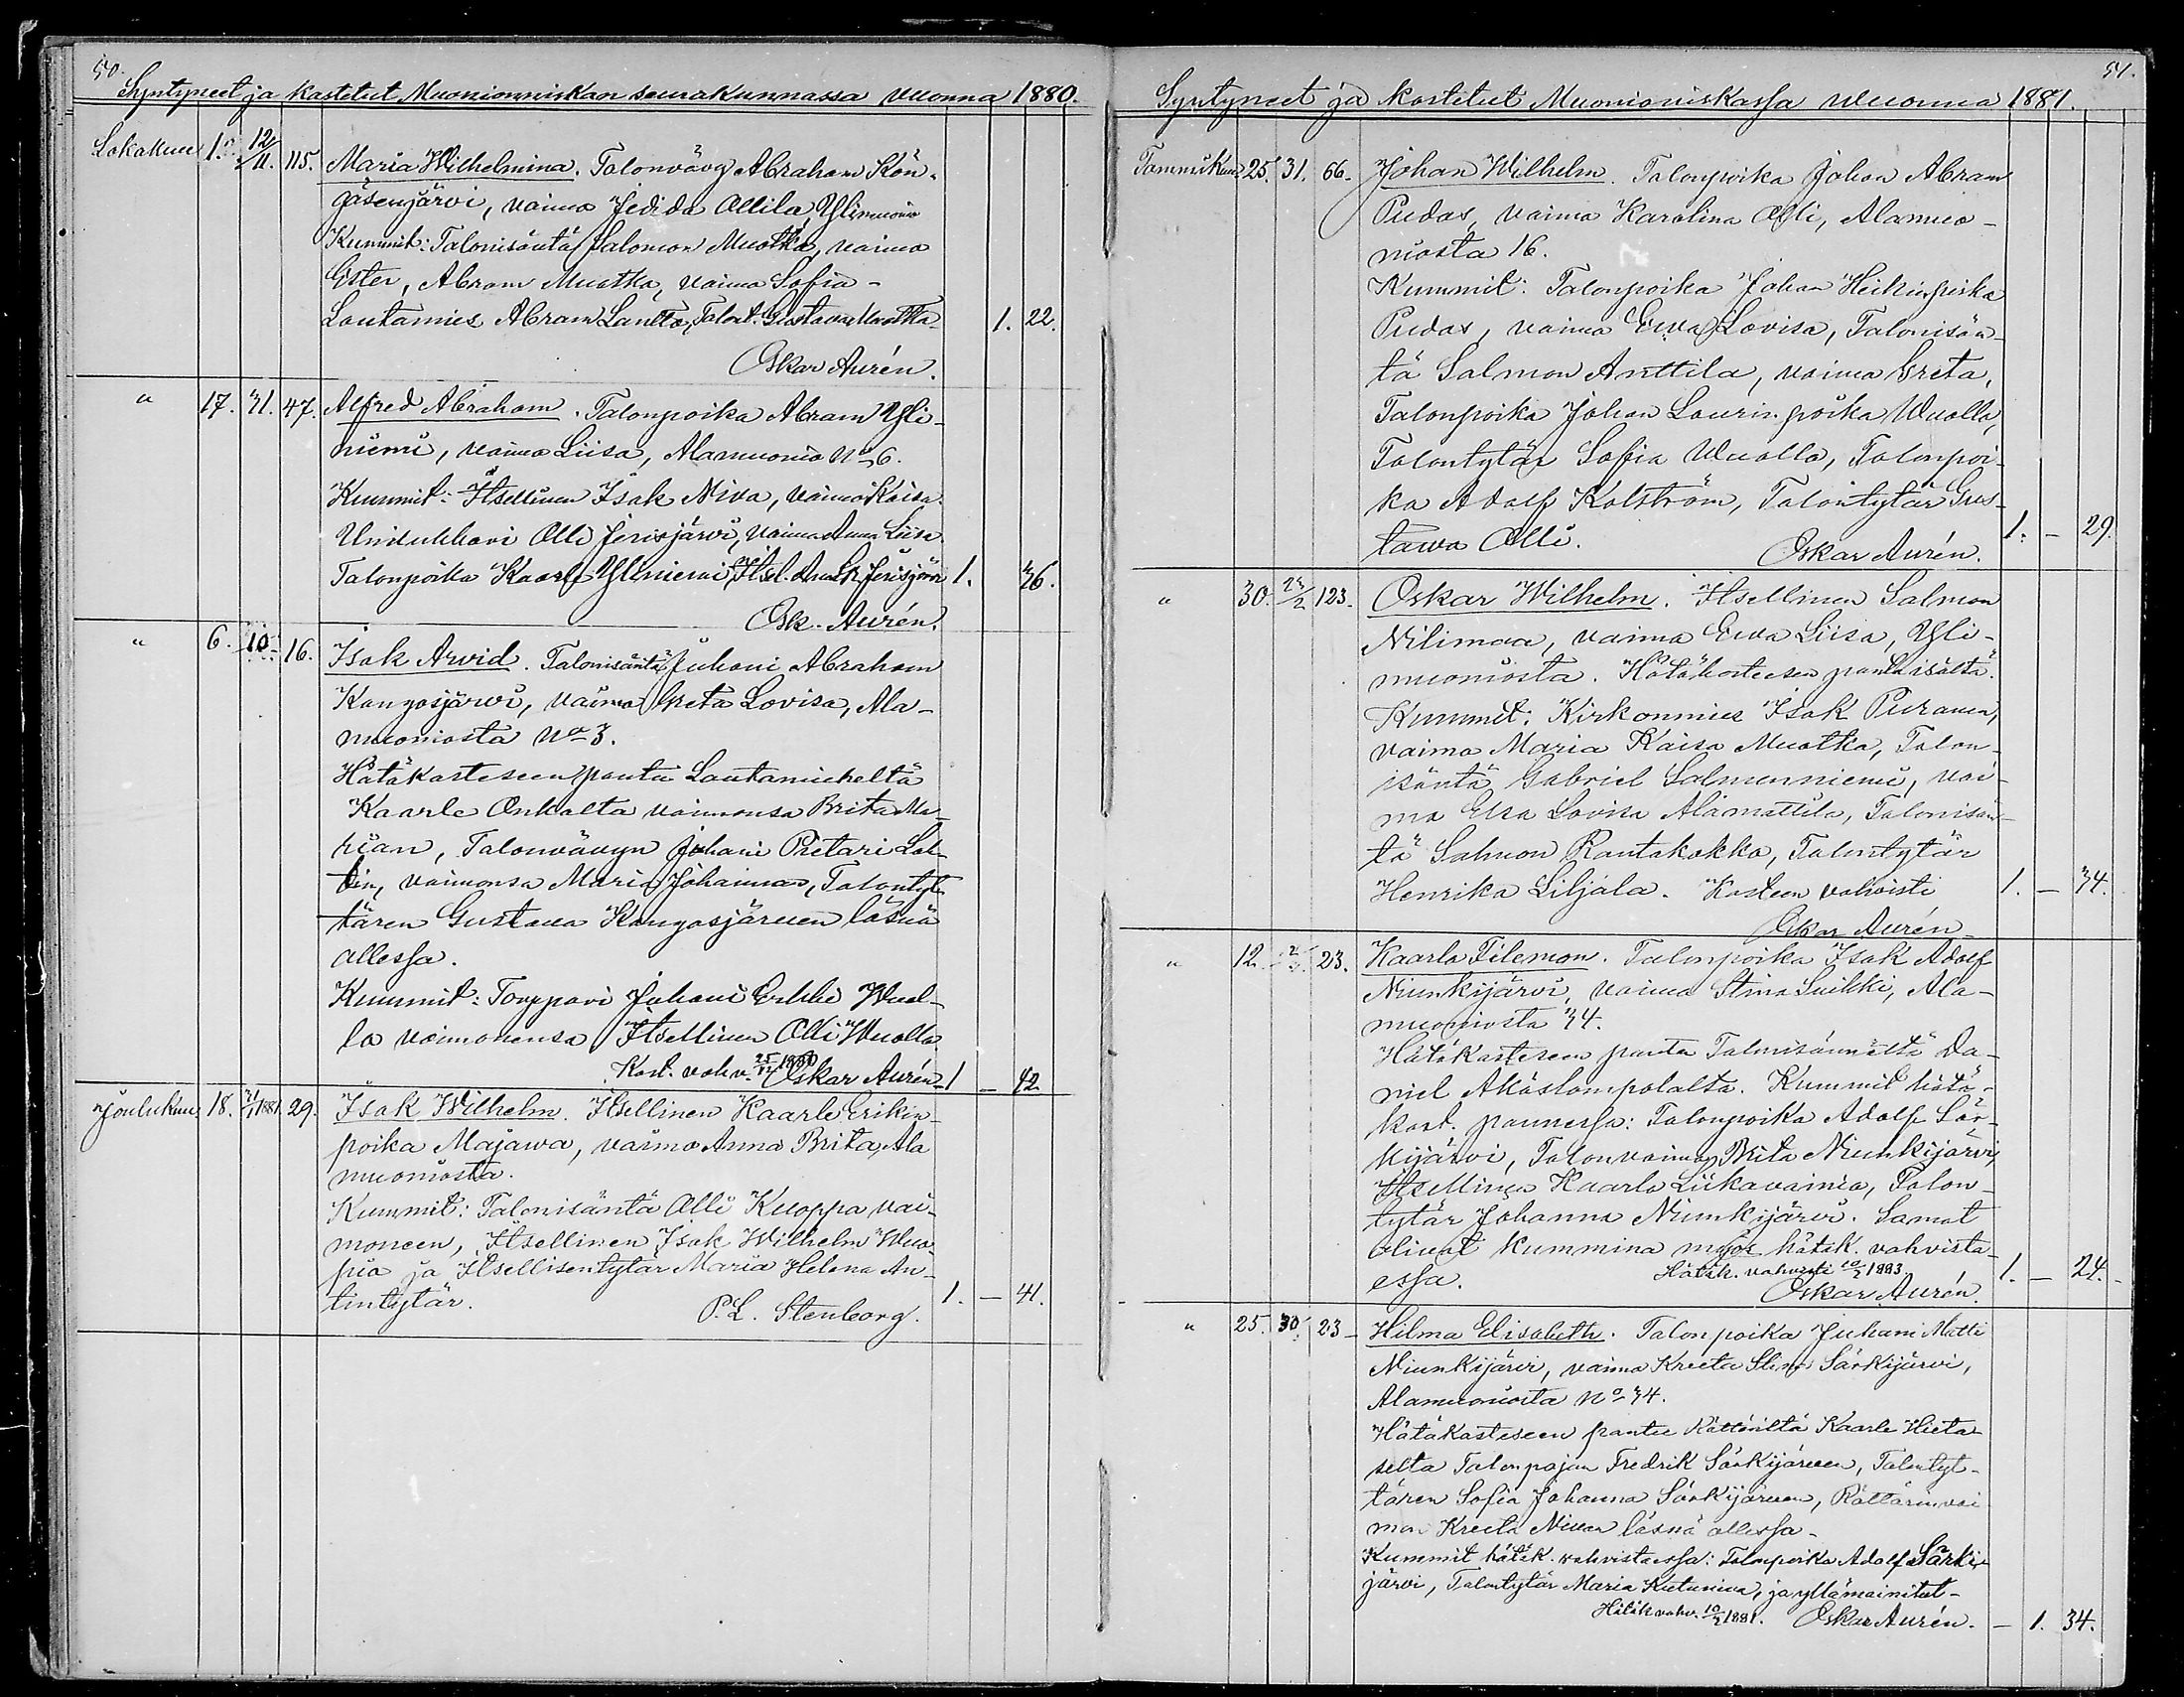 50.
Syntyneet ja kastetut Muonionniskan seurakunnassa vuonna 1880.
Lokakuu 1. 12/11. 115. Maria Wilhelmina. Talonvävy Abraham Kön-
gäsenjärvi, vaimo Jedida Ollila, Ylimuonio
Kummit: Talonisäntä Salomon Muotka, vaimo
Ester, Abram Muotka, vaimo Sofia
Lautamies Abram Lantto, Talont. Gustava Muotka 1. 22.
Oskar Aurén.
" 17. 31. 47. Alfred Abraham. Talonpoika Abram Yli-
niemi, vaimo Liisa, Alamuonio No 6.
Kummit: Itsellinen Isak Niva, vaimo Kaisa
Uudukkari Olli Jerisjärvi, vaimo Anna Liisa
Talonpoika Kaarle Yliniemi, Itsel. Jerisjärvi 1. 36.
Osk. Aurén.
" 6. 10 16. Isak Arvid. Talonisäntä Juhani Abraham
Kangosjärvi, vaimo Greta Lovisa, Ala-
muoniosta No 3.
Hätäkasteseen pantu Lautamieheltä
Kaarle Onkalta vaimonsa Brita Ma-
rian, Talonvävyn Juhani Pietari Lal-
tin, vaimonsa Maria Johannan, Talontyt-
tären Gustava Kangosjärven läsnä
ollessa.
Kummit: Torppari Juhani Erkki Wuol-
lo vaimonensa Itsellinen Olli Wuollo
Kast. vahv. 1880 Oskar Aurén 1 - 42
Joulukuu 18. 1881. 29. Isak Wilhelm. Itsellinen Kaarle Erikin-
poika Majawa, vaimo Anna Brita, Ala
muoniosta.
Kummit: Talonisäntä Olli Kuoppa vai-
moneen, Itsellinen Isak Wilhelm Wuo-
pio ja Itsellisentytär Maria Helena An-
tintytär. 1. - 41.
P. L. Stenborg.
51.
Syntyneet ja kastetut Muonioniskassa vuonna 1881.
Tammikuu 25. 31. 66. Johan Wilhelm. Talonpoika Johan Abram
Pudas, vaimo Karolina Olli, Alamuo-
niosta 16.
Kummit: Talonpoika Johan Heikinpoika
Pudas, vaimo Ewa Lovisa, Talonisän-
tä Salmon Anttila, vaimo Greta,
Talonpoika Johan Laurin poika Wuollo,
Talontytär Sofia Wuollo, Talonpoi-
ka Adolf Kolström, Talontytär Gus-
tawa Olli. 1. - 29.
Oskar Aurén.
" 30. 23/2 123. Oskar Wilhelm. Itsellinen Salmon
Nilimaa, vaimo Ewa Liisa, Yli-
muoniosta. Hätäkasteesen pantu isältä.
Kummit: Kirkonmies Isak Puranen,
vaimo Maria Kaisa Muotka, Talon-
isäntä Gabriel Salmenniemi, vai-
mo Elsa Lovisa Alamattila, Talonisän-
tä Salmon Rantakokko, Talontytär
Henrika Liljala. Kasteen vahvisti 1. - 34.
Oskar Aurén
" 12. 23. Kaarlo Filemon. Talonpoika Isak Adolf
Niunkijärvi, vaimo Stina Suikki, Ala-
muoniosta 34.
Hätäkasteseen pantu Talonisännältä Da-
niel Äkäslompolalta. Kummit hätä-
kast. pannessa: Talonpoika Adolf Sär-
kijärvi, Talonvaimo Brita Niunkijärvi,
Itsellinen Kaarlo Liikavainio, Talon-
tytär Johanna Niunkijärvi. Samat
olivat kummina myös hätäk. vahvista-
essa. Hätäk. vahvisti 10/2 1883. 1. - 24.
Oskar Aurén.
" 25. 30. 23 Hilma Elisabeth. Talonpoika Juhani Matti
Niunkijärvi, vaimo Kreeta Stina Särkijärvi,
Alamuoniosta No 34.
Hätäkasteseen pantu Rättäriltä Kaarle Hieta-
selta Talonpojan Fredrik Särkijärven, Talontyt-
tären Sofia Johanna Särkijärven, Rättärin vai
mon Kreeta Nivan läsnä ollessa.
Kummit hätäk. vahvistaessa: Talonpoika Adolf Särki-
järvi, Talontytär Maria Kutuniva, ja yllämainitut.
Hätäk. vahv. 10/2 1881. Oskar Aurén. - 1. 34.